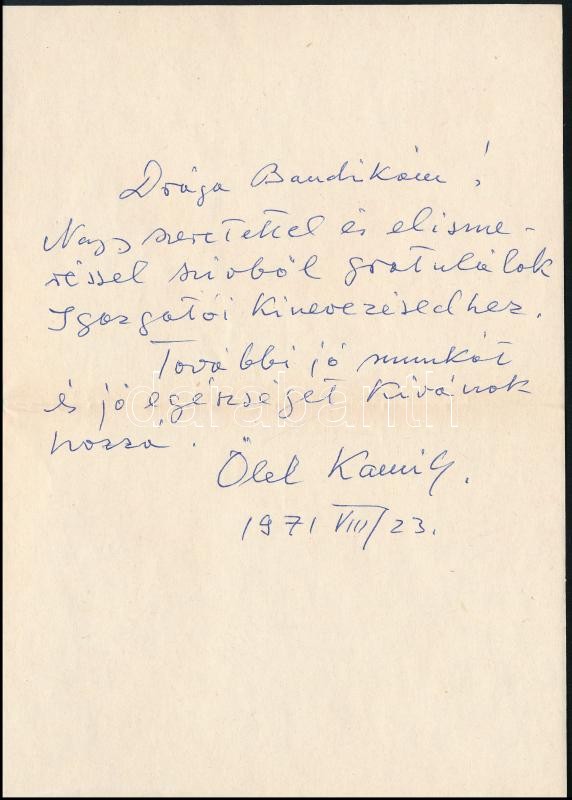 Drága Bandikám!
Nagy szeretettel és elisme-
réssel szívből gratulálok
Igazgatói Kinevezésedhez.
További jó munkát
és jó egészséget kívánok
hozzá.
Ölel Kamill.
1971 VIII/23.
darabanth